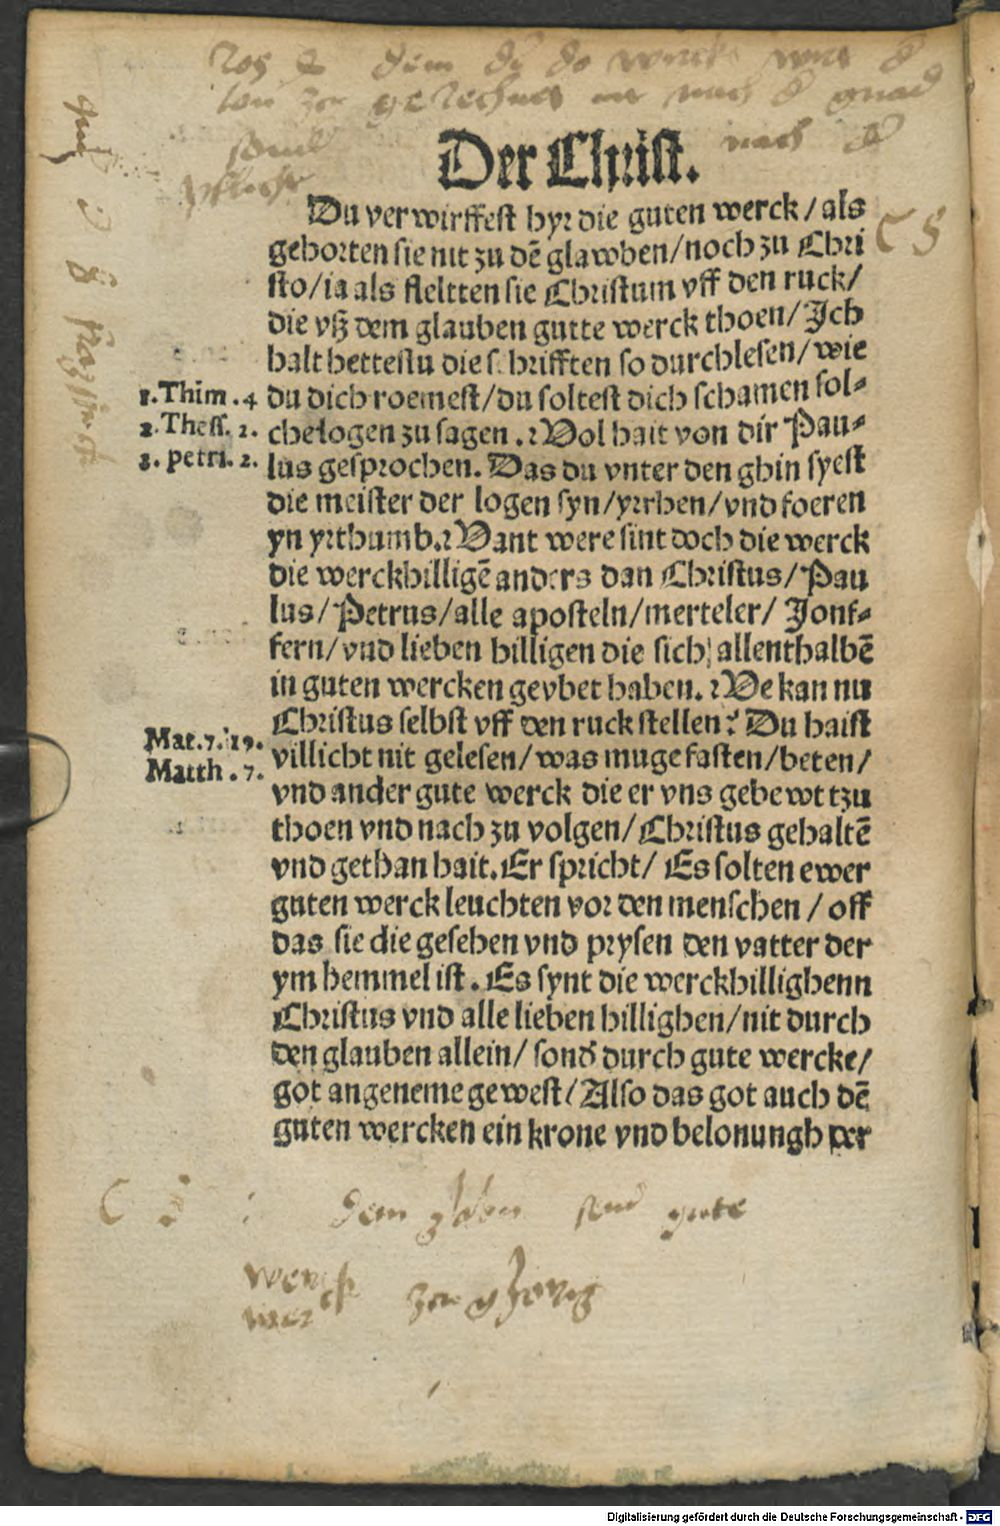 Der Christ.
Du verwirffest hyr die guten werck/als
gehorten sie nit zu dē glawben/noch zu Chri
sto/ia als steltten sie Christum vff den ruck/
die vß dem glauben gutte werck thoen/Ich
halt hettestu die schrifften so durchlesen/wie
1.Thim.4 du dich roemest/du soltest dich schamen sol⸗
2.Thess.2. che logen zu sagen. Wol hait von dir Pau⸗
2.petri.2. lus gesprochen. Das du vnter den ghin syest
die meister der logen syn/yrrhen/vnd foeren
yn yrthumb. Want were sint doch die werck
die werckhilligē anders dan Christus/Pau
lus/Petrus/alle aposteln/merteler/ Jonf⸗
fern/vnd lieben hilligen die sich allenthalbē
in guten wercken gevbet haben. We kan nu
Christus selbst vff den ruck stellen? Du haist
Mat.7.19. villicht nit gelesen/was muge fasten/beten/
Matth.7. vnd ander gute werck die er vns gebewt tzu
thoen vnd nach zu volgen/Christus gehaltē
vnd gethan hait. Er spricht/ Es solten ewer
guten werck leuchten vor den menschen/off
das sie die gesehen vnd prysen den vatter der
ym hemmel ist. Es synt die werckhillighenn
Christus vnd alle lieben hillighen/nit durch
den glauben allein/ sond̄ durch gute wercke/
got angeneme gewest/Also das got auch dē
guten wercken ein krone vnd belonungh ver
dem globen send gute
werck
Digitalisierung gefördert durch die Deutsche Forschungsgemeinschaft - DFG